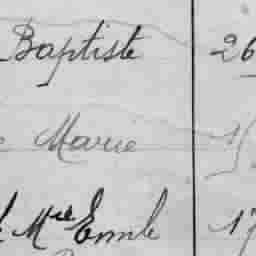 Baptiste 26
Marie
Mie Emile 17